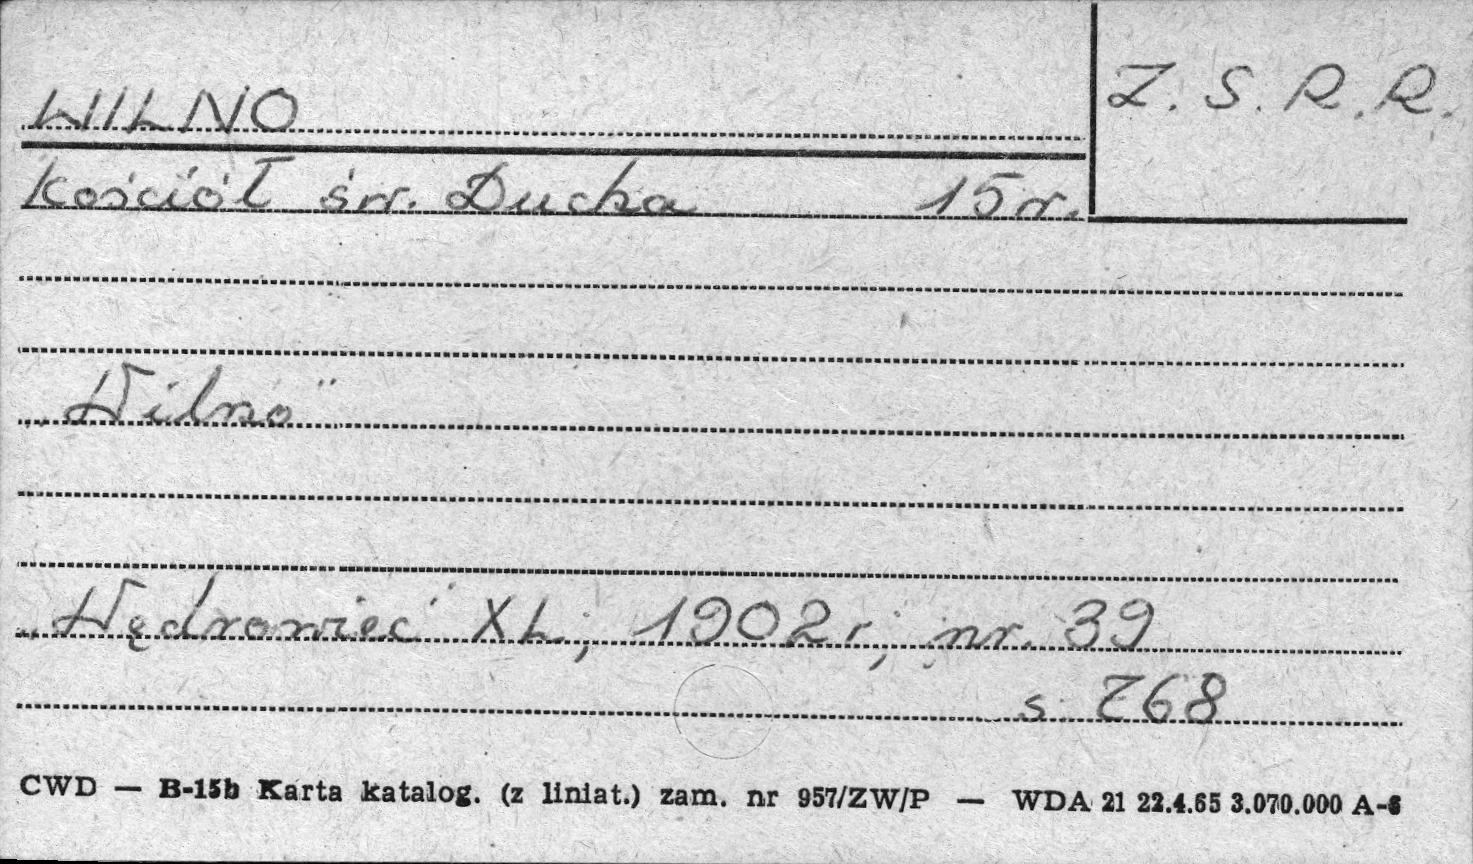 WILNO
Z. S. R. R.
Kościół św. Ducha 15 w.
„Wilno"
„Wędrowiec" XL, 1902 r, nr. 39
s. 768
CWD — B-15b Karta katalog. (z liniat.) zam. nr 957/ZW/P — WDA 21 22.4.65 3.070.000 A-6